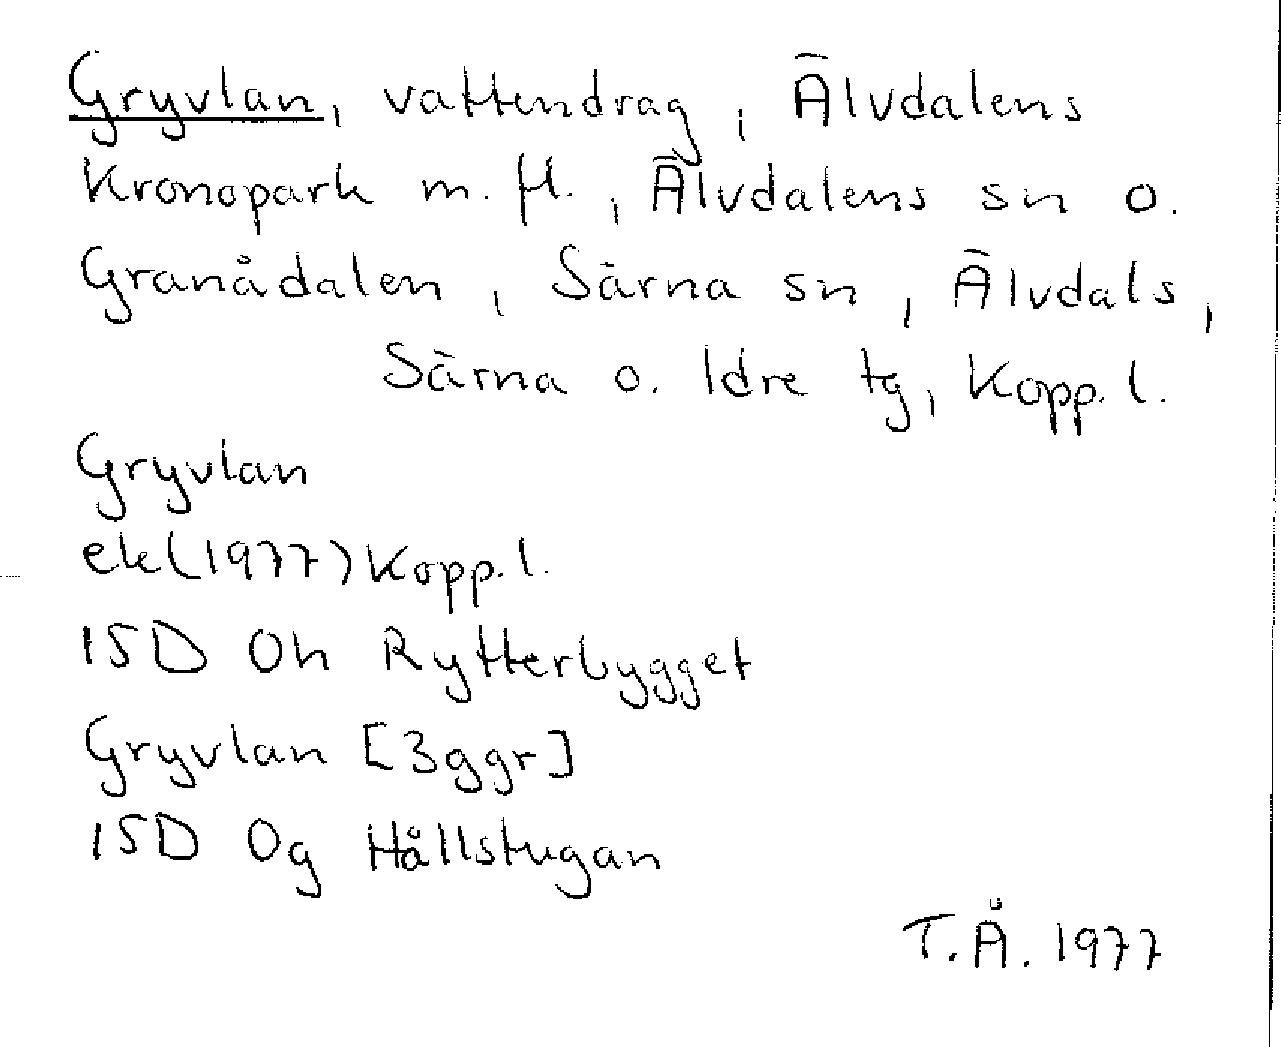 Gryvlan, vattendrag, Älvdalens
Kronopark m. fl., Älvdalens sn o.
Granådalen, Särna sn, Älvdals,
Särna o. Idre tg, Kopp. l.
Gryvlan
ek(1977)Kopp. l.
15D 0h Rytterbygget
Gryvlan [3ggr]
15D 0g Hållstugan
T.Å. 1977